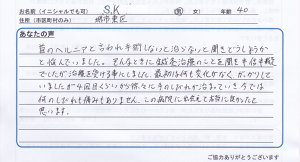 お名前(イニシャルでも可) S.K 男 女) 年齢 40
住所(市区町村のみ) 堺市東区
あなたの声
首のヘルニアと言われ手術しないと治らないと聞きどうしようか
と悩んでいました。そんなときに鍼灸治療のことを聞き半信半疑
でしたが治療を受ける事にしました。最初は何も変化がなく、がっかりして
いましたが4回目くらいから徐々に手のしびれが治まっていき今では
何のしびれも痛みもありません。この病院に出会えて本当に良かったと
思います。
ご協力ありがとうございます